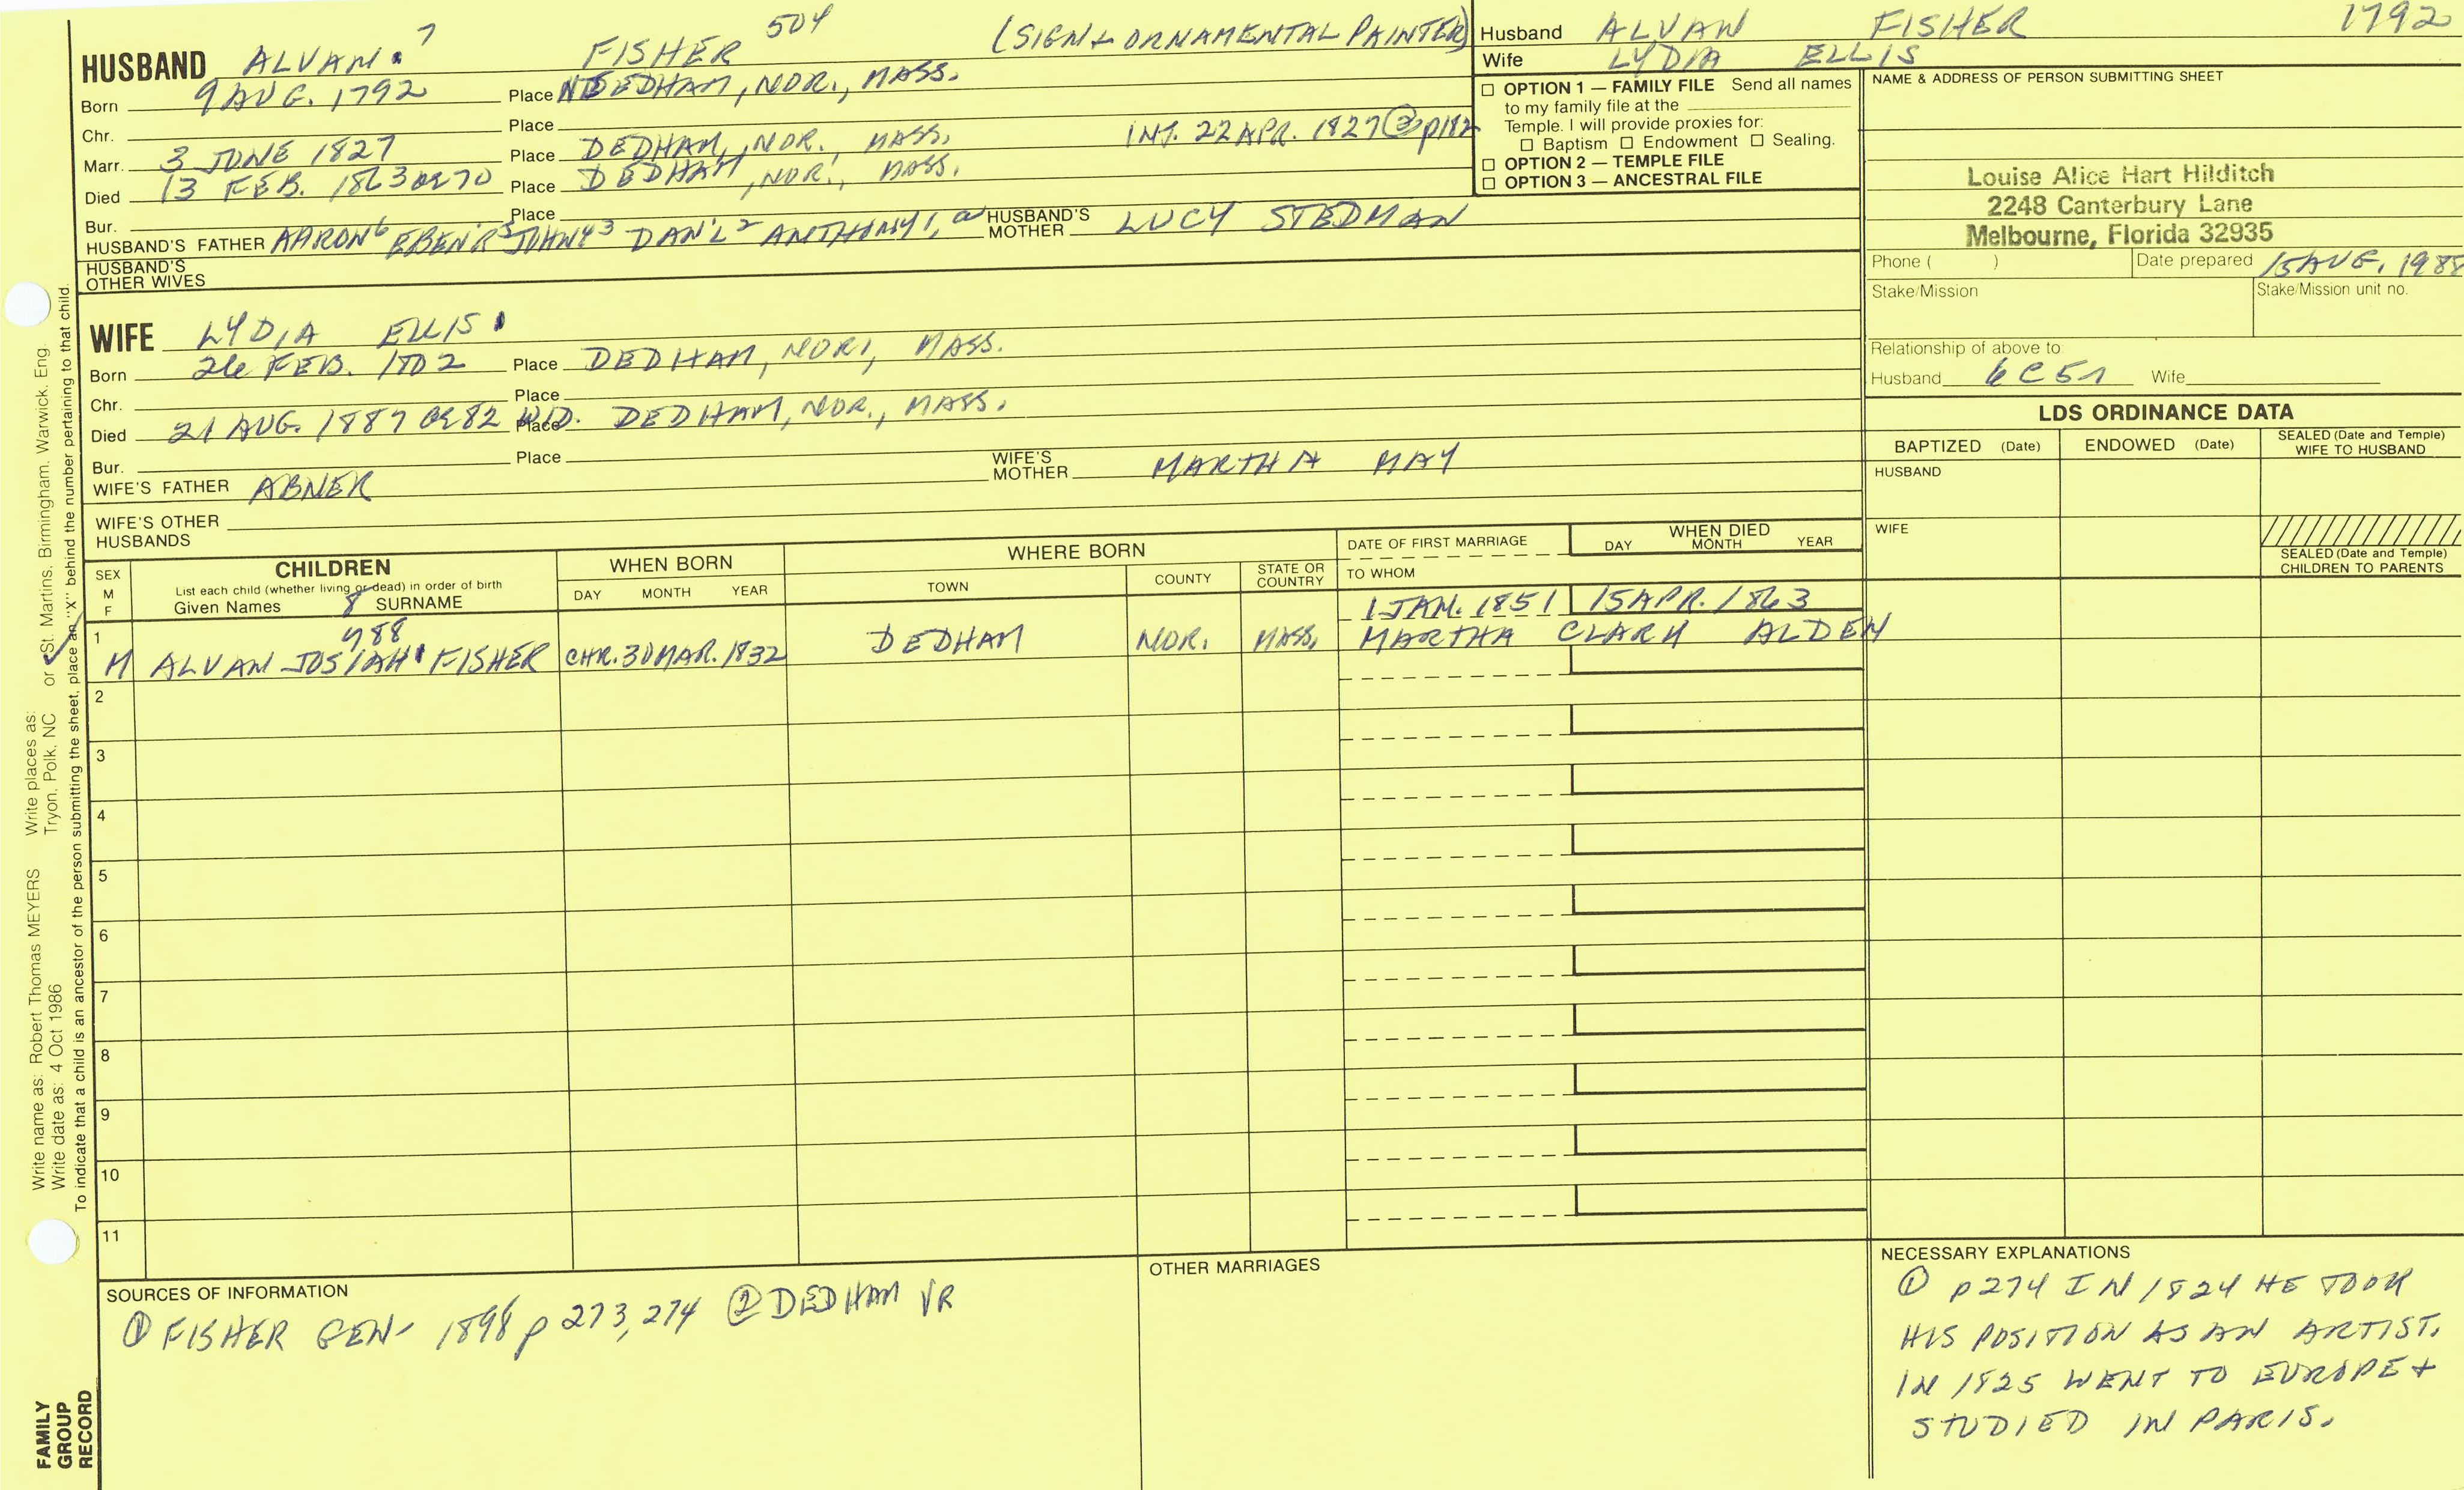 HUSBAND ALVAN 7 FISHER 504 (SIGN & ORNAMENTAL PAINTER)
Born 9 AUG. 1792 Place NEEDHAM, NOR., MASS.
Chr. Place
Marr. 3 JUNE 1827 Place DEDHAM, NOR., MASS. INT. 22 APR. 1827 ② p182
Died 13 FEB. 1863 OR 70 Place DEDHAM, NOR., MASS.
Bur. Place
HUSBAND'S FATHER AARON6 EBEN'R5 JOHN43 DAN'L2 ANTHONY1, HUSBAND'S MOTHER LUCY STEDMAN
HUSBAND'S OTHER WIVES
WIFE LYDIA ELLIS
Born 26 FEB. Place DEDHAM, NOR., MASS.
Chr. Place
Died 21 AUG. 1887 OR 82 WID. Place DEDHAM, NOR., MASS.
Bur. Place
WIFE'S FATHER ABNER WIFE'S MOTHER MARTHA MAY
WIFE'S OTHER HUSBANDS
Husband ALVAN FISHER 1792
Wife LYDIA ELLIS
OPTION 1 — FAMILY FILE Send all names
to my family file at the
Temple. I will provide proxies for:
Baptism Endowment Sealing.
OPTION 2 — TEMPLE FILE
OPTION 3 — ANCESTRAL FILE
NAME & ADDRESS OF PERSON SUBMITTING SHEET
Louise Alice Hart Hilditch
2248 Canterbury Lane
Melbourne, Florida 32935
Phone ( ) Date prepared 15 AUG. 1988
Stake/Mission Stake/Mission unit no.
Relationship of above to:
Husband 6C5R Wife
LDS ORDINANCE DATA
BAPTIZED (Date) ENDOWED (Date) SEALED (Date and Temple) WIFE TO HUSBAND
HUSBAND
WIFE
SEALED (Date and Temple)
CHILDREN TO PARENTS
SEX M F CHILDREN WHEN BORN WHERE BORN DATE OF FIRST MARRIAGE WHEN DIED
List each child (whether living or dead) in order of birth
Given Names 8 SURNAME DAY MONTH YEAR TOWN COUNTY STATE OR COUNTRY TO WHOM DAY MONTH YEAR
1 JAN. 1851 15 APR. 1863
1 M ALVAN JOSIAH FISHER 988 CHR. 30 MAR. 1832 DEDHAM NOR. MASS. MARTHA CLARK ALDEN
2
3
4
5
6
7
8
9
10
11
SOURCES OF INFORMATION
① FISHER GEN- 1898 p 273, 274 ② DEDHAM VR
OTHER MARRIAGES
NECESSARY EXPLANATIONS
① p274 IN 1824 HE TOOK
HIS POSITION AS AN ARTIST.
IN 1825 WENT TO EUROPE +
STUDIED IN PARIS.
Write name as: Robert Thomas MEYERS Write places as: Tryon, Polk, NC or St. Martins, Birmingham, Warwick, Eng.
Write date as: 4 Oct 1986
To indicate that a child is an ancestor of the person submitting the sheet, place an "X" behind the number pertaining to that child.
FAMILY
GROUP
RECORD